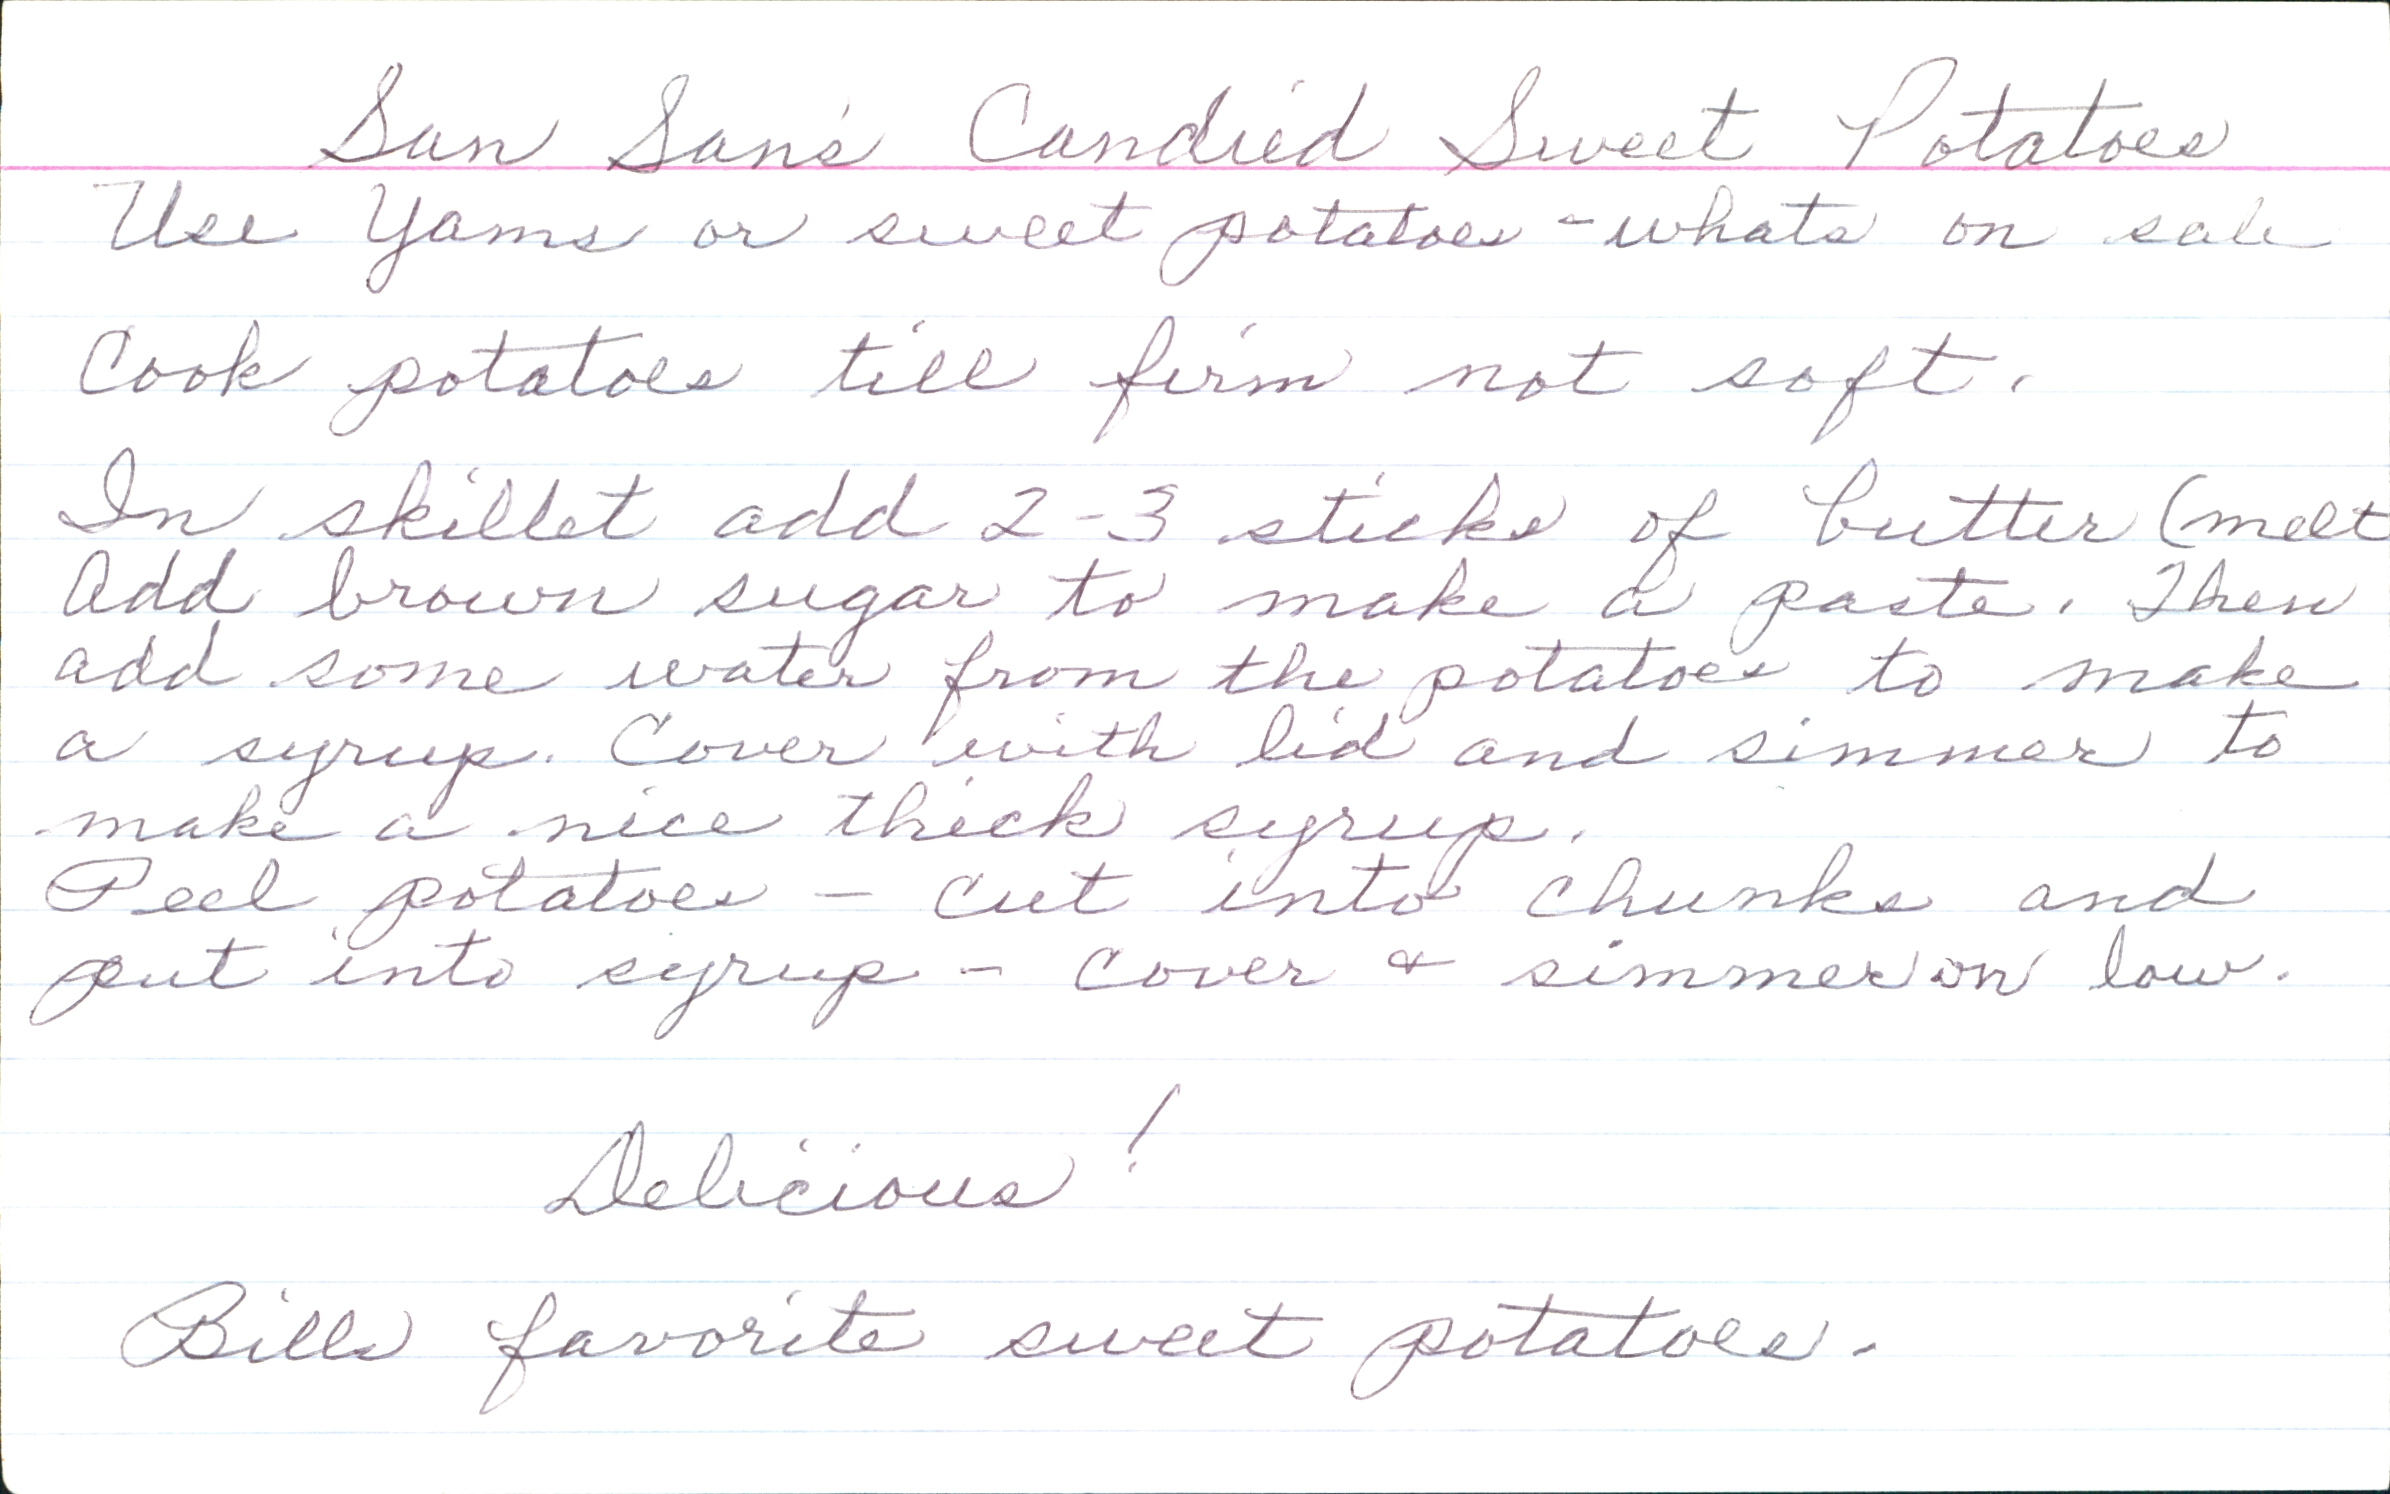 San San's Candied Sweet Potatoes
Use Yams or sweet potatoes - whats on sale
Cook potatoes till firm not soft.
In skillet add 2-3 sticks of butter (melt
Add brown sugar to make a paste. Then
add some water from the potatoes to make
a syrup. Cover with lid and simmer to
make a nice thick syrup.
Peel potatoes - cut into chunks and
put into syrup - cover & simmer on low.
Delicious!
Bills favorite sweet potatoes.